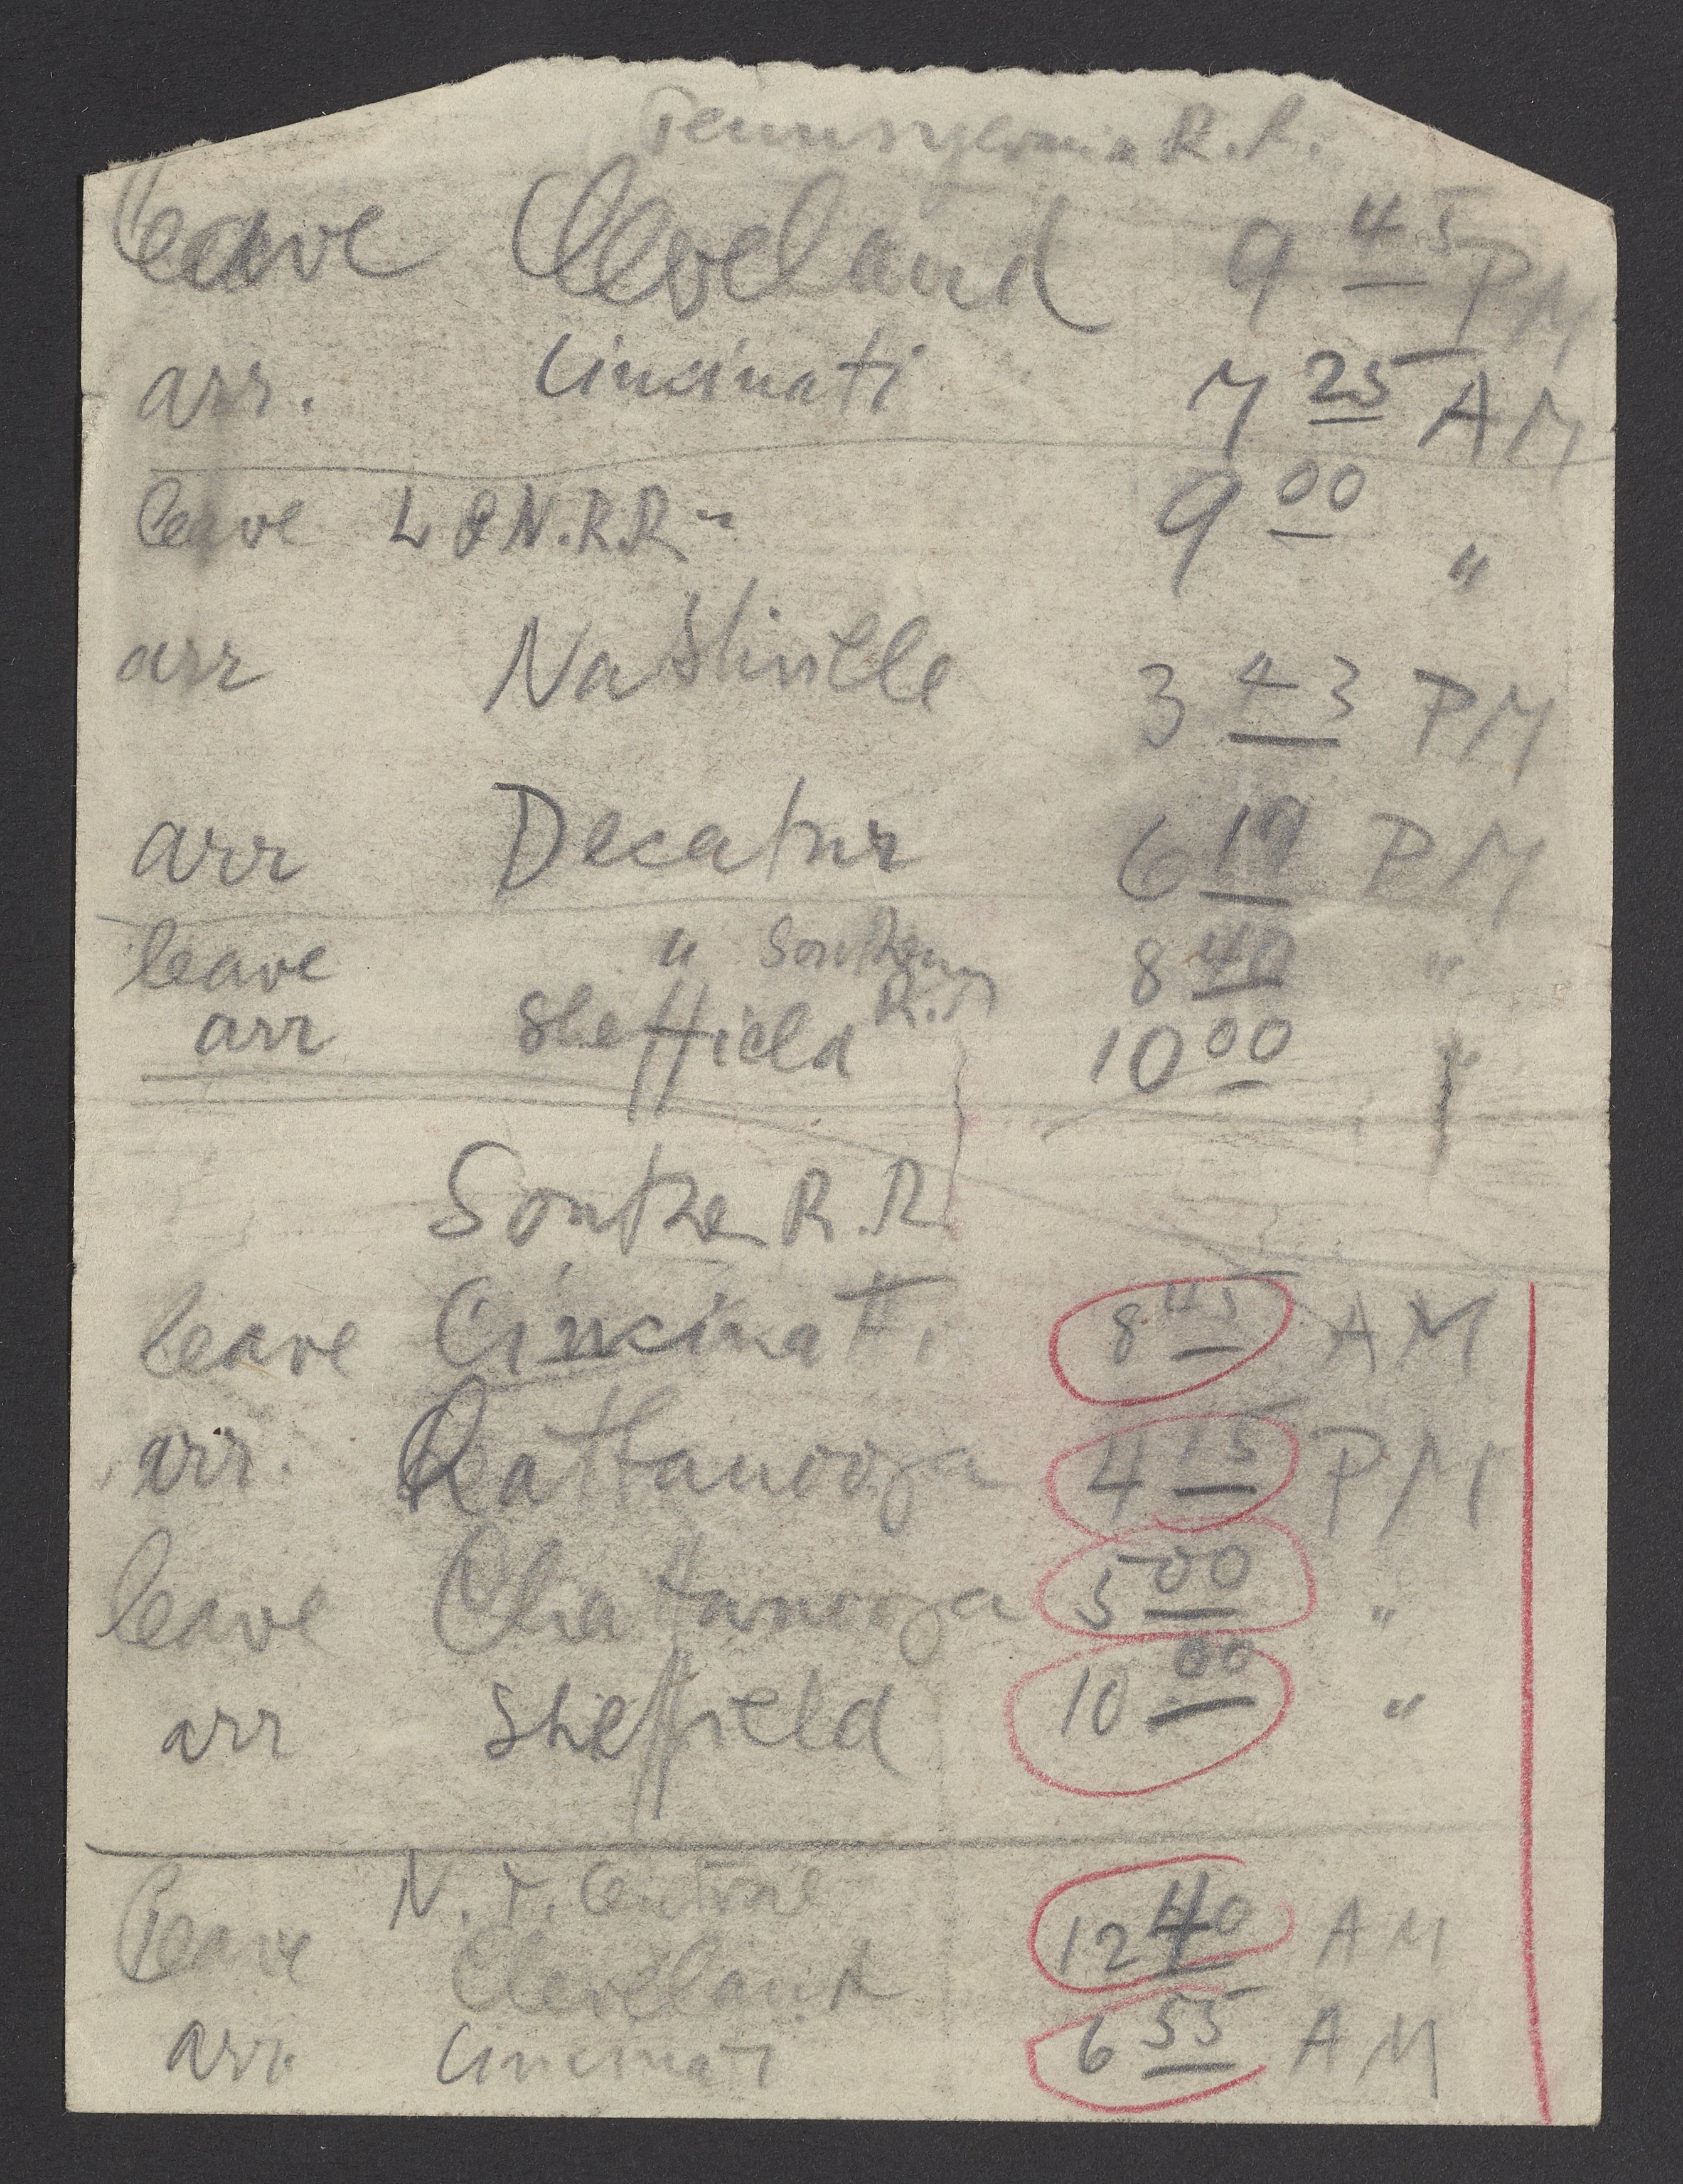 Pennsylvania R.R.
leave Cleveland 9 45 PM
arr. Cincinati 7 25 AM
leave L & N.R.R. " 9 00 "
arr Nashville 3 43 PM
arr Decatur 6 19 PM
leave " Southern 8 40 "
R.R
arr Sheffield 10 00 "
Southe R.R
leave Cincinatti 8 45 AM
arr. Chattanooga 4 15 PM
leave Chattanooga 5 00 "
arr Sheffield 10 00 "
N.Y. Central
leave Cleveland 12 40 AM
arr. Cincinati 6 55 AM